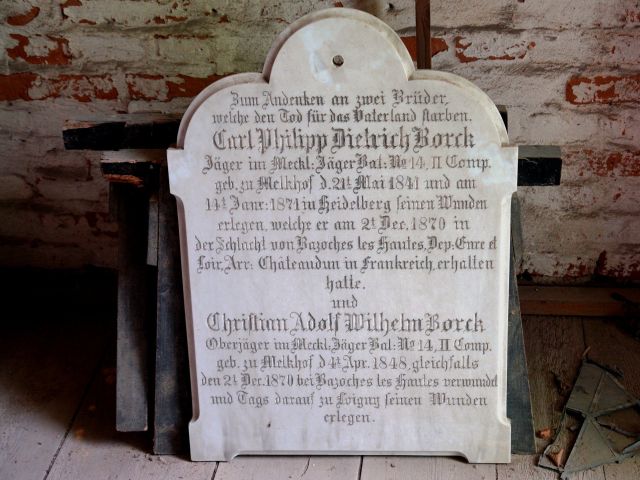 Zum Andenken an zwei Brüder,
welche den Tod für das Vaterland starben.
Carl Philipp Dietrich Borck
Jäger im Meckl: Jäger Bat: No 14, II Comp.
geb. zu Melkhof d. 21t Mai 1841 und am
11t Janr: 1871 in Heidelberg seinen Wunden
erlegen, welche er am 2t Dec. 1870 in
der Schlacht von Bazoches les Hautes, Dep: Eure et
Loir, Arr: Châteaudun in Frankreich, erhalten
hatte.
und
Christian Adolf Wilhelm Borck
Oberjäger im Meckl: Jäger Bat: No 14, II Comp.
geb. zu Melkhof d. 4t Apr. 1848, gleichfalls
den 2t Dec. 1870 bei Bazoches les Hautes verwundd
und Tags darauf zu Loigny seinen Wunden
erlegen.